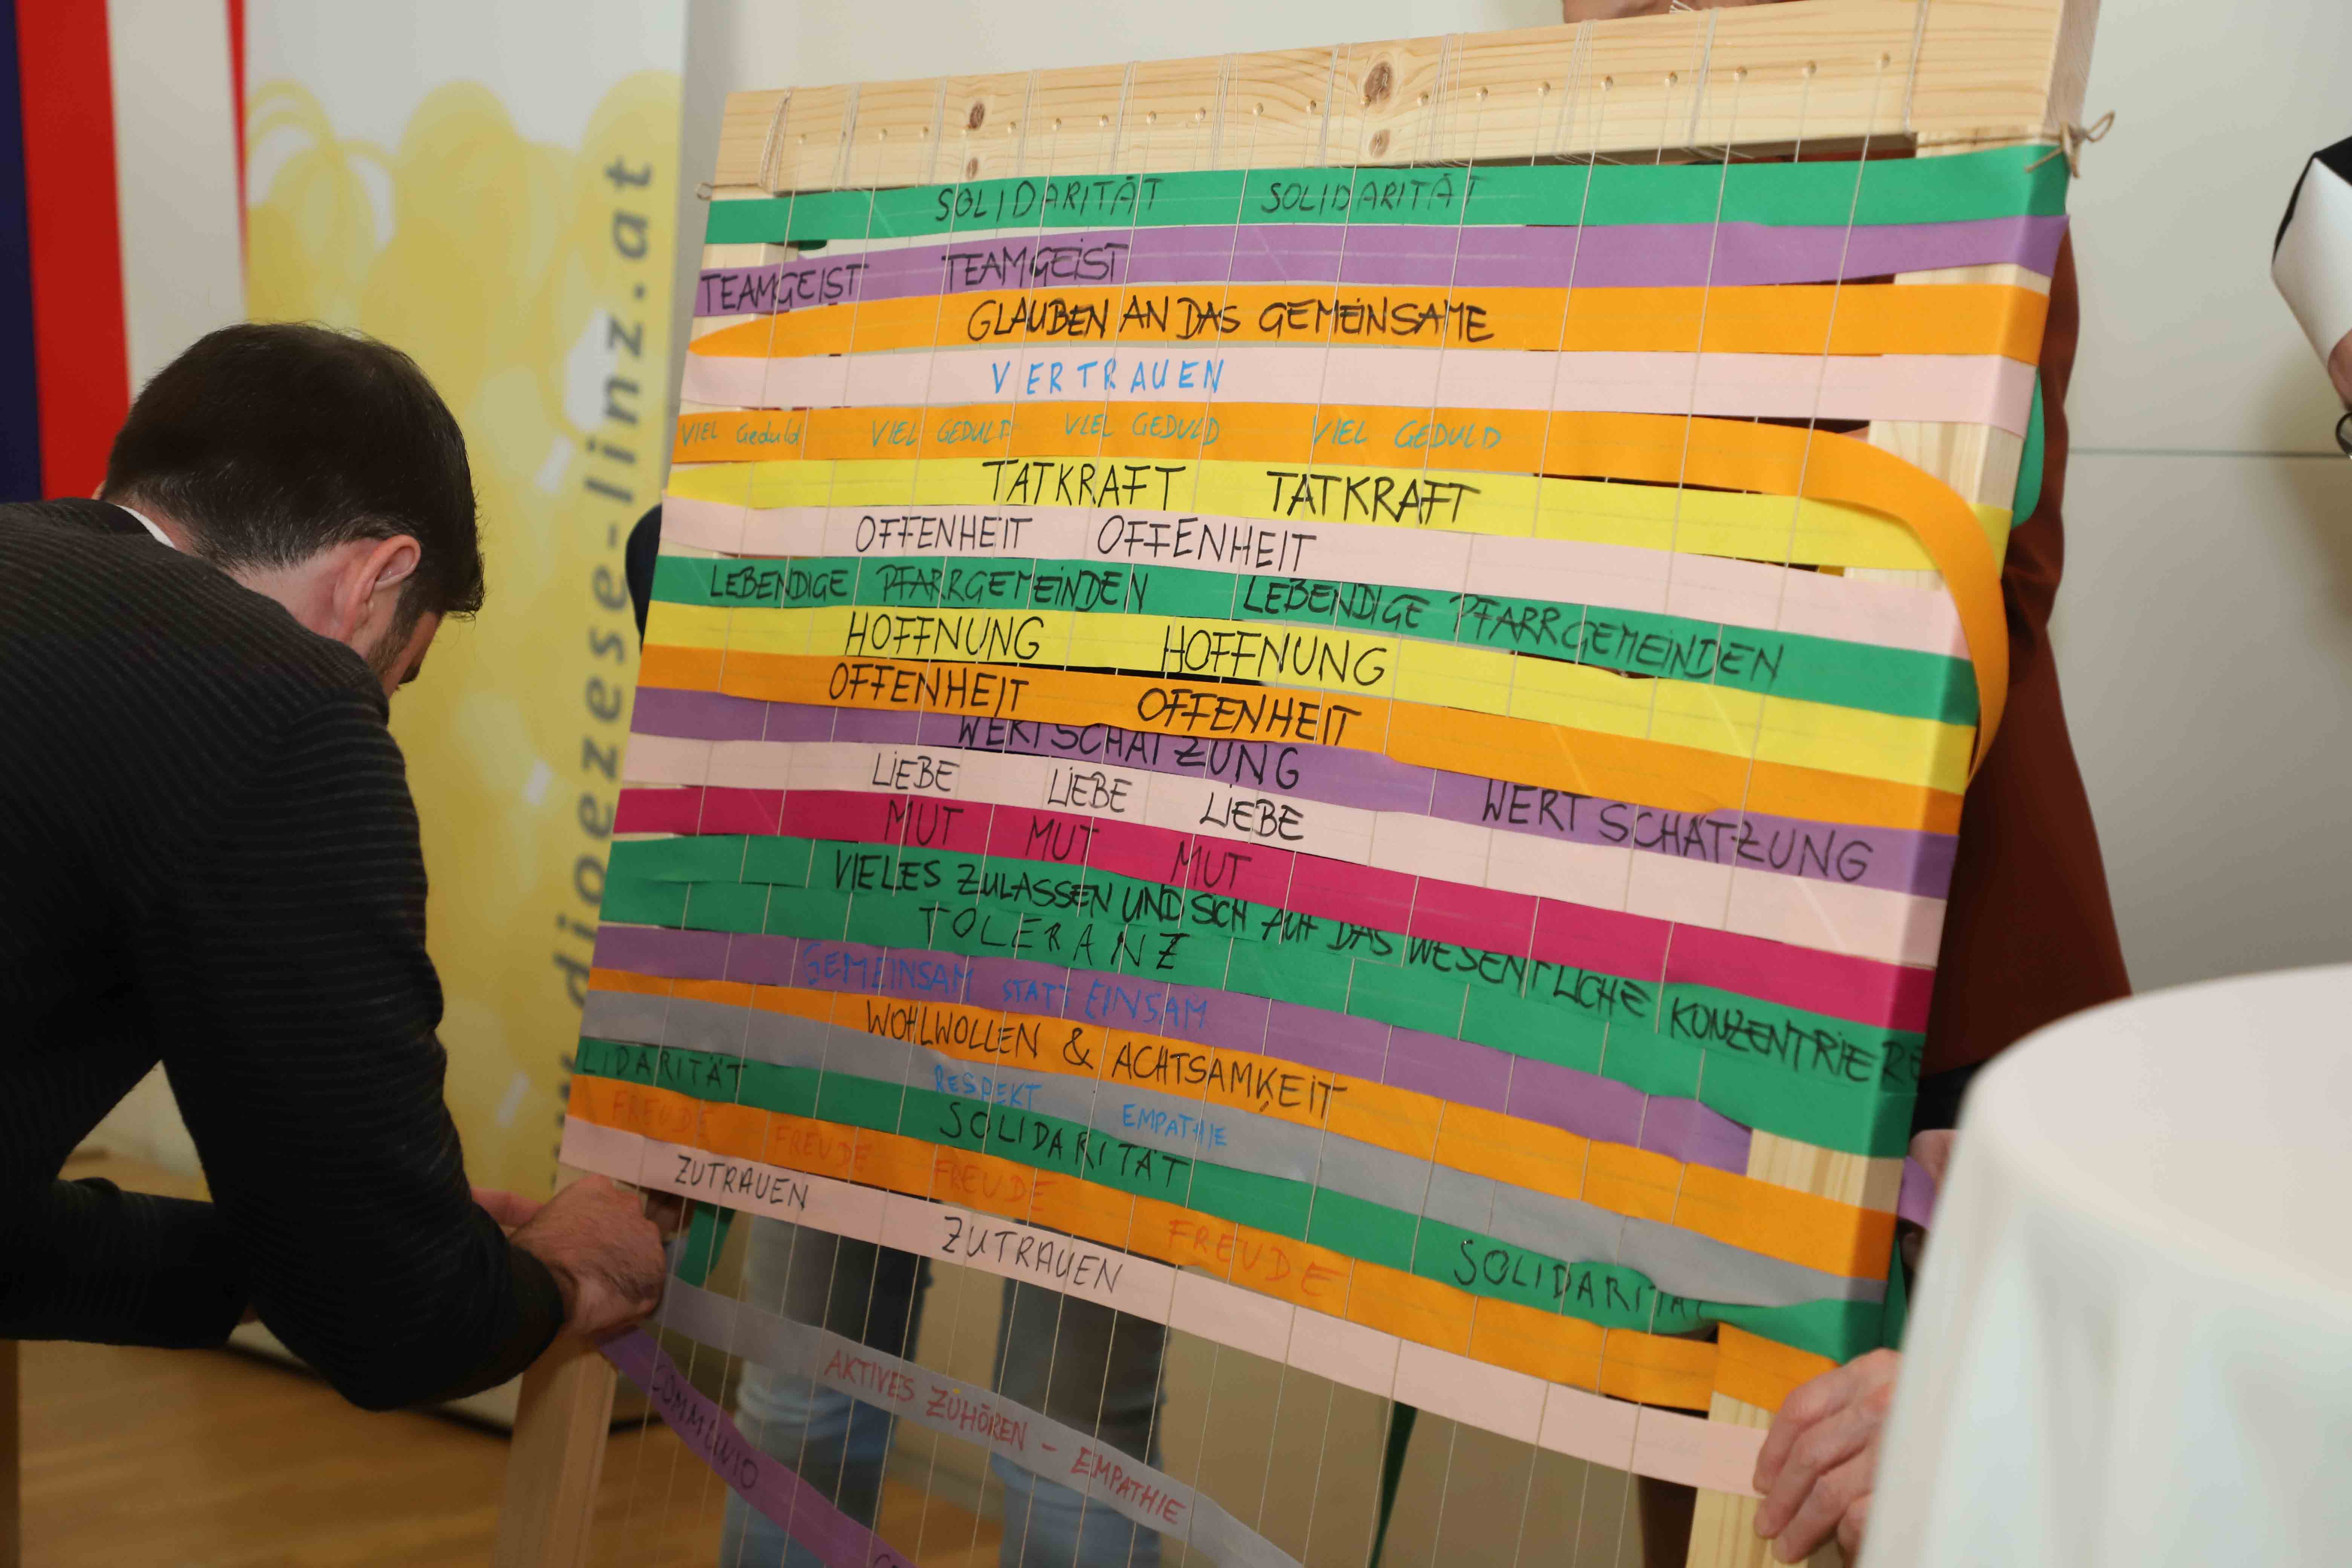 SOLIDARITÄT SOLIDARITÄT
TEAMGEIST TEAMGEIST
GLAUBEN AN DAS GEMEINSAME
VERTRAUEN
VIEL Geduld VIEL GEDULD VIEL GEDULD VIEL GEDULD
TATKRAFT TATKRAFT
OFFENHEIT OFFENHEIT
LEBENDIGE PFARRGEMEINDEN LEBENDIGE PFARRGEMEINDEN
HOFFNUNG HOFFNUNG
OFFENHEIT OFFENHEIT
WERTSCHÄTZUNG WERTSCHÄTZUNG
LIEBE LIEBE LIEBE
MUT MUT MUT
VIELES ZULASSEN UND SICH AUF DAS WESENTLICHE KONZENTRIERE
TOLERANZ
GEMEINSAM STATT EINSAM
WOHLWOLLEN & ACHTSAMKEIT
RESPEKT EMPATHIE
LIDARITÄT SOLIDARITÄT SOLIDARITÄT
FREUDE FREUDE FREUDE FREUDE
ZUTRAUEN ZUTRAUEN
AKTIVES ZUHÖREN - EMPATHIE
COMMUNIO
dioezese-linz.at